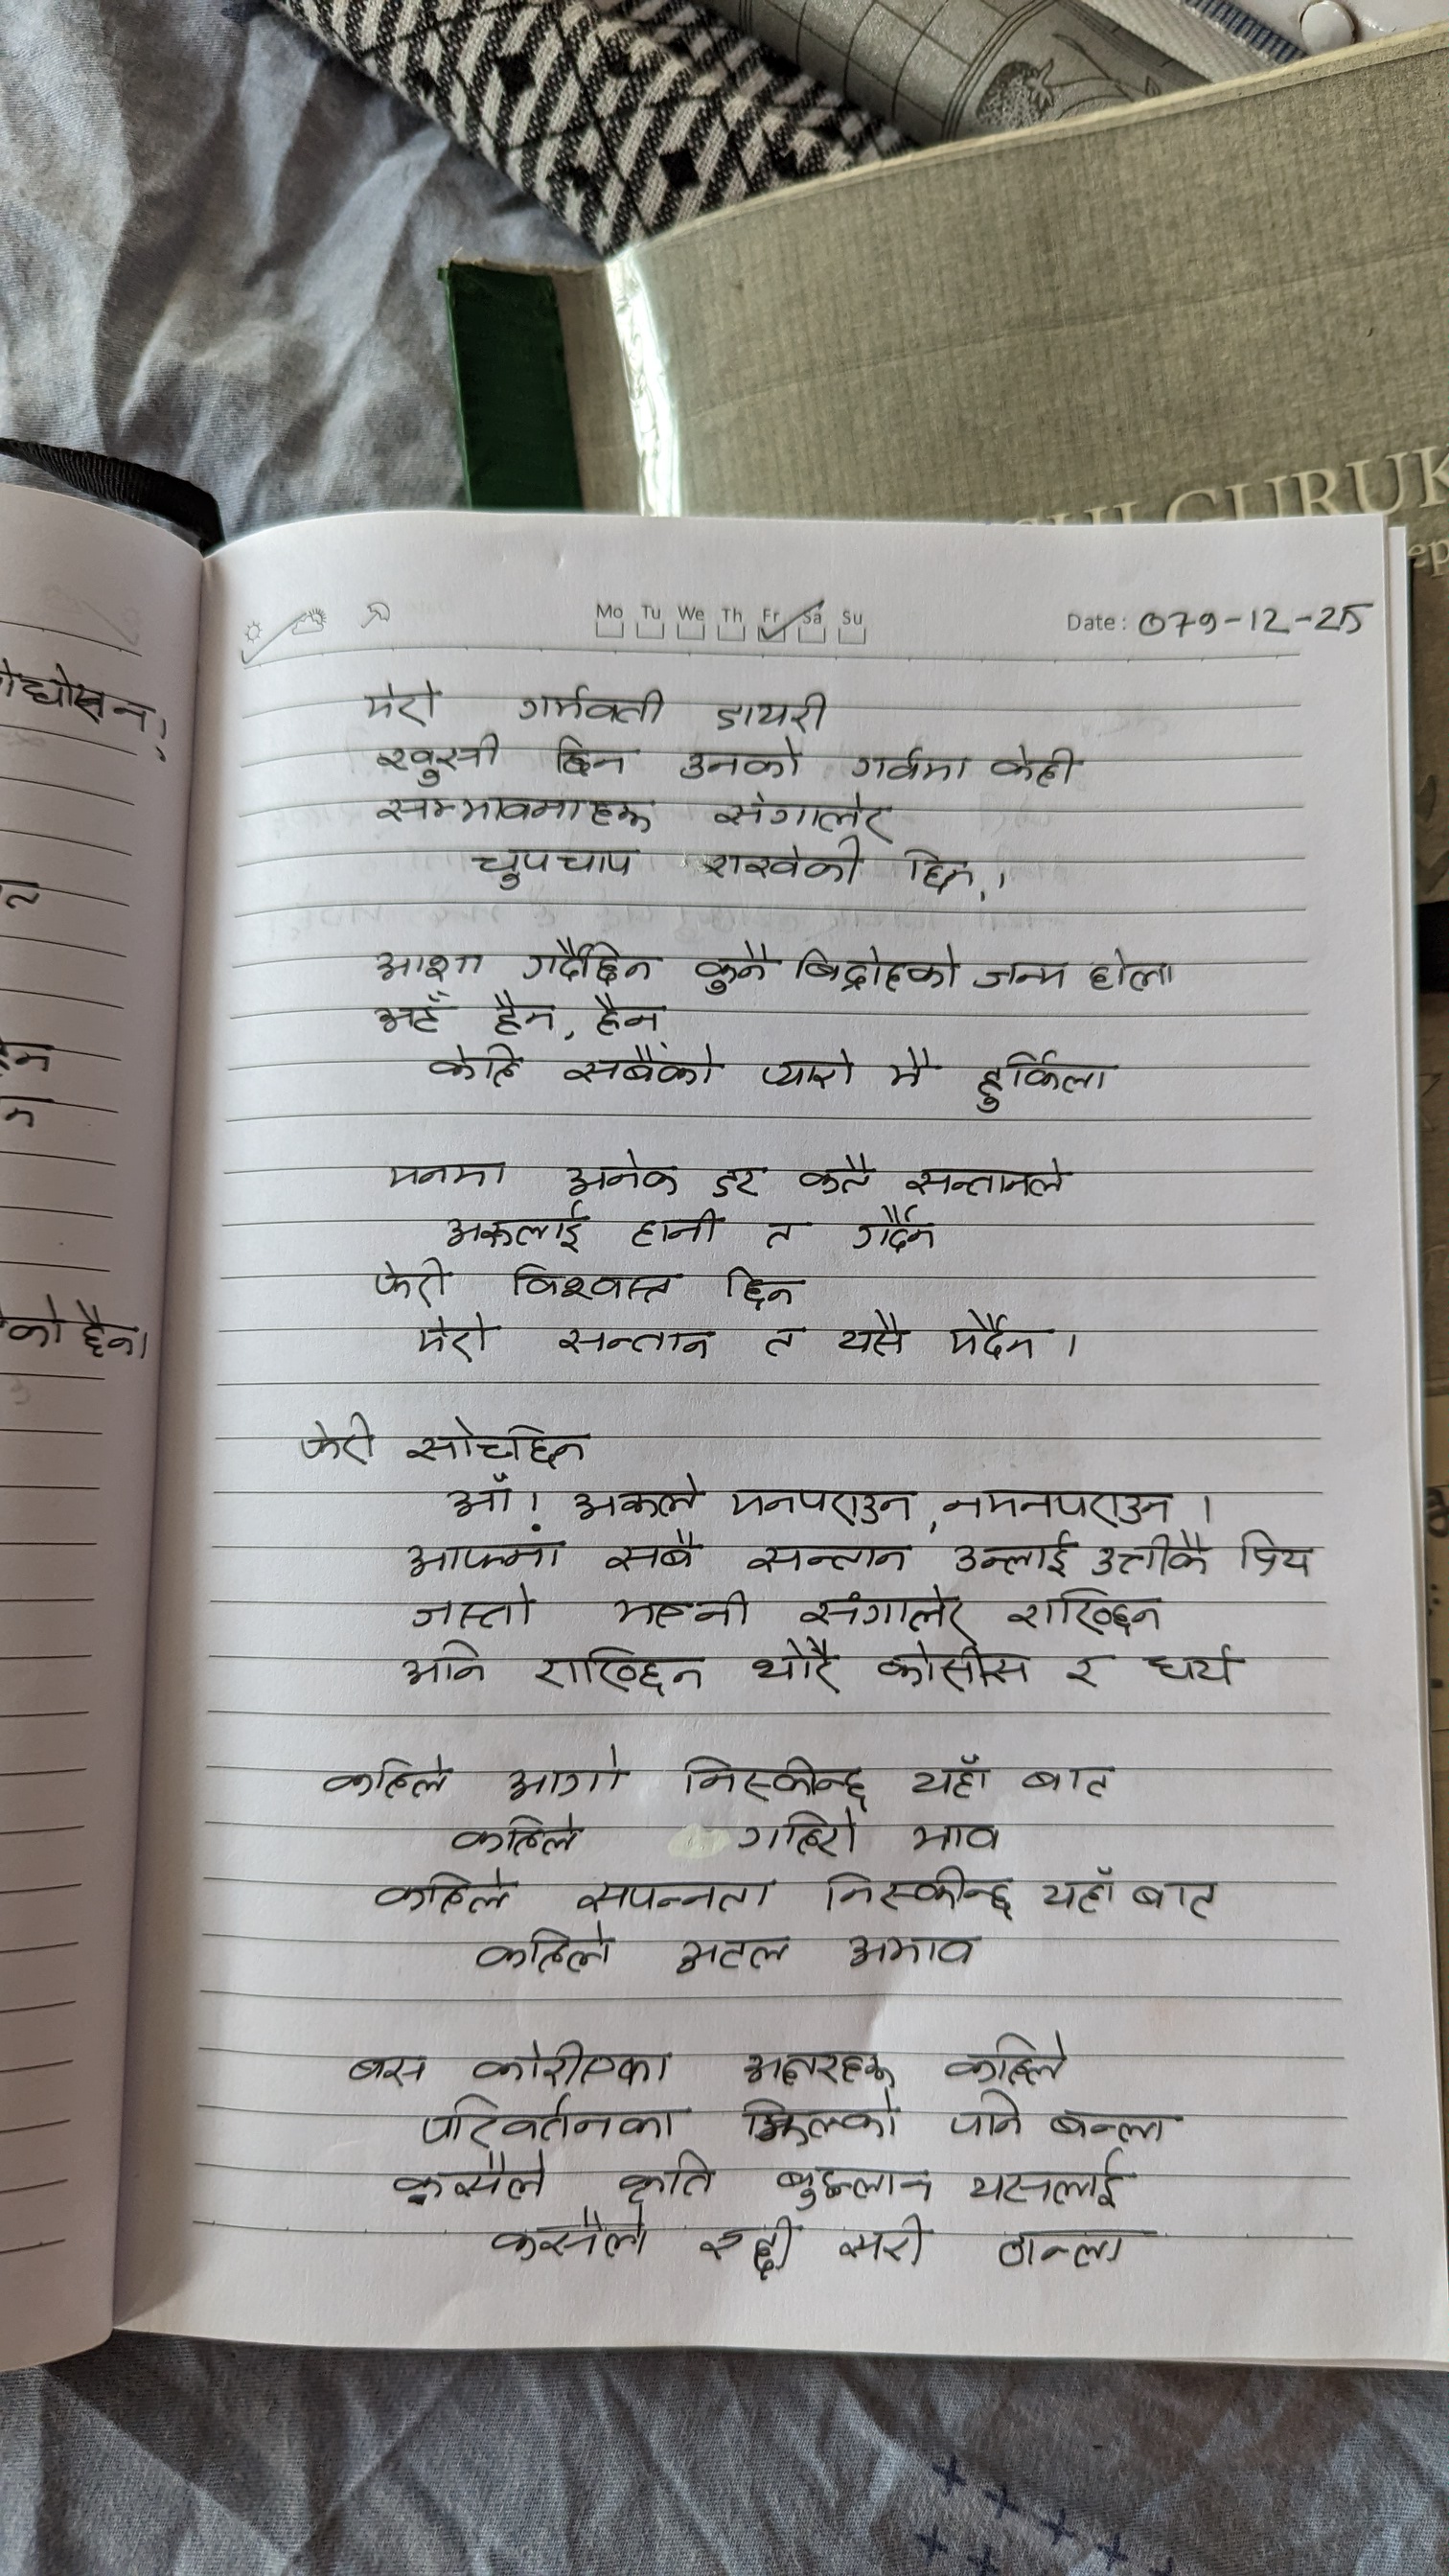 SHI GURUK
ep
ोद्योस न!
त
हेन
न
को हैन।
Mo Tu We Th Fr Sa Su
Date: 079-12-25
मेरो गर्भवती डायरी
खुसी छिन उनको गर्वमा केही
सम्भावनाहरू संगालेर
चुपचाप राखेकी छिन्।
आशा गर्दैछिन कुनै बिद्रोहको जन्म होला
अहँ हैन, हैन
केहि सबैको प्यारो भै हुर्किला
मनमा अनेक डर कतै सन्तानले
अरूलाई हानी त गर्दैन
फेरी विश्वस्त छिन
मेरो सन्तान त यसै मर्दैन।
फेरी सोच्छिन
आँ! अरूले मनपराउन, नमनपराउन।
आफ्ना सबै सन्तान उन्लाई उत्तीकै प्रिय
जस्तो भएनी संगालेर राख्छिन
अनि राख्छिन थोरै कोसीस र धर्य
कहिले आगो निस्कीन्छ यहाँ बाट
कहिले गहिरो भाव
कहिले सपन्नता निस्कीन्छ यहाँ बाट
कहिले अटल अभाव
बस कोरीएका अक्षरहरू कहिले
परिवर्तनका झिल्को पनि बन्ला
कसैले कृति बुझ्लान यसलाई
कसैले रद्दी सरी ठान्ला